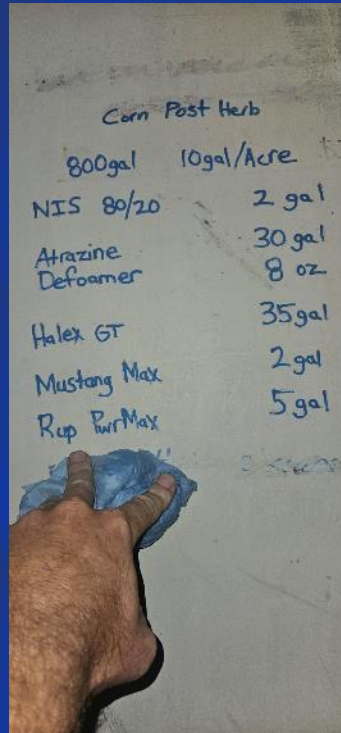 Corn Post Herb
800gal 10gal/Acre
NIS 80/20 2 gal
Atrazine 30 gal
Defoamer 8 oz
Halex GT 35gal
Mustang Max 2 gal
Rup PwrMax 5 gal